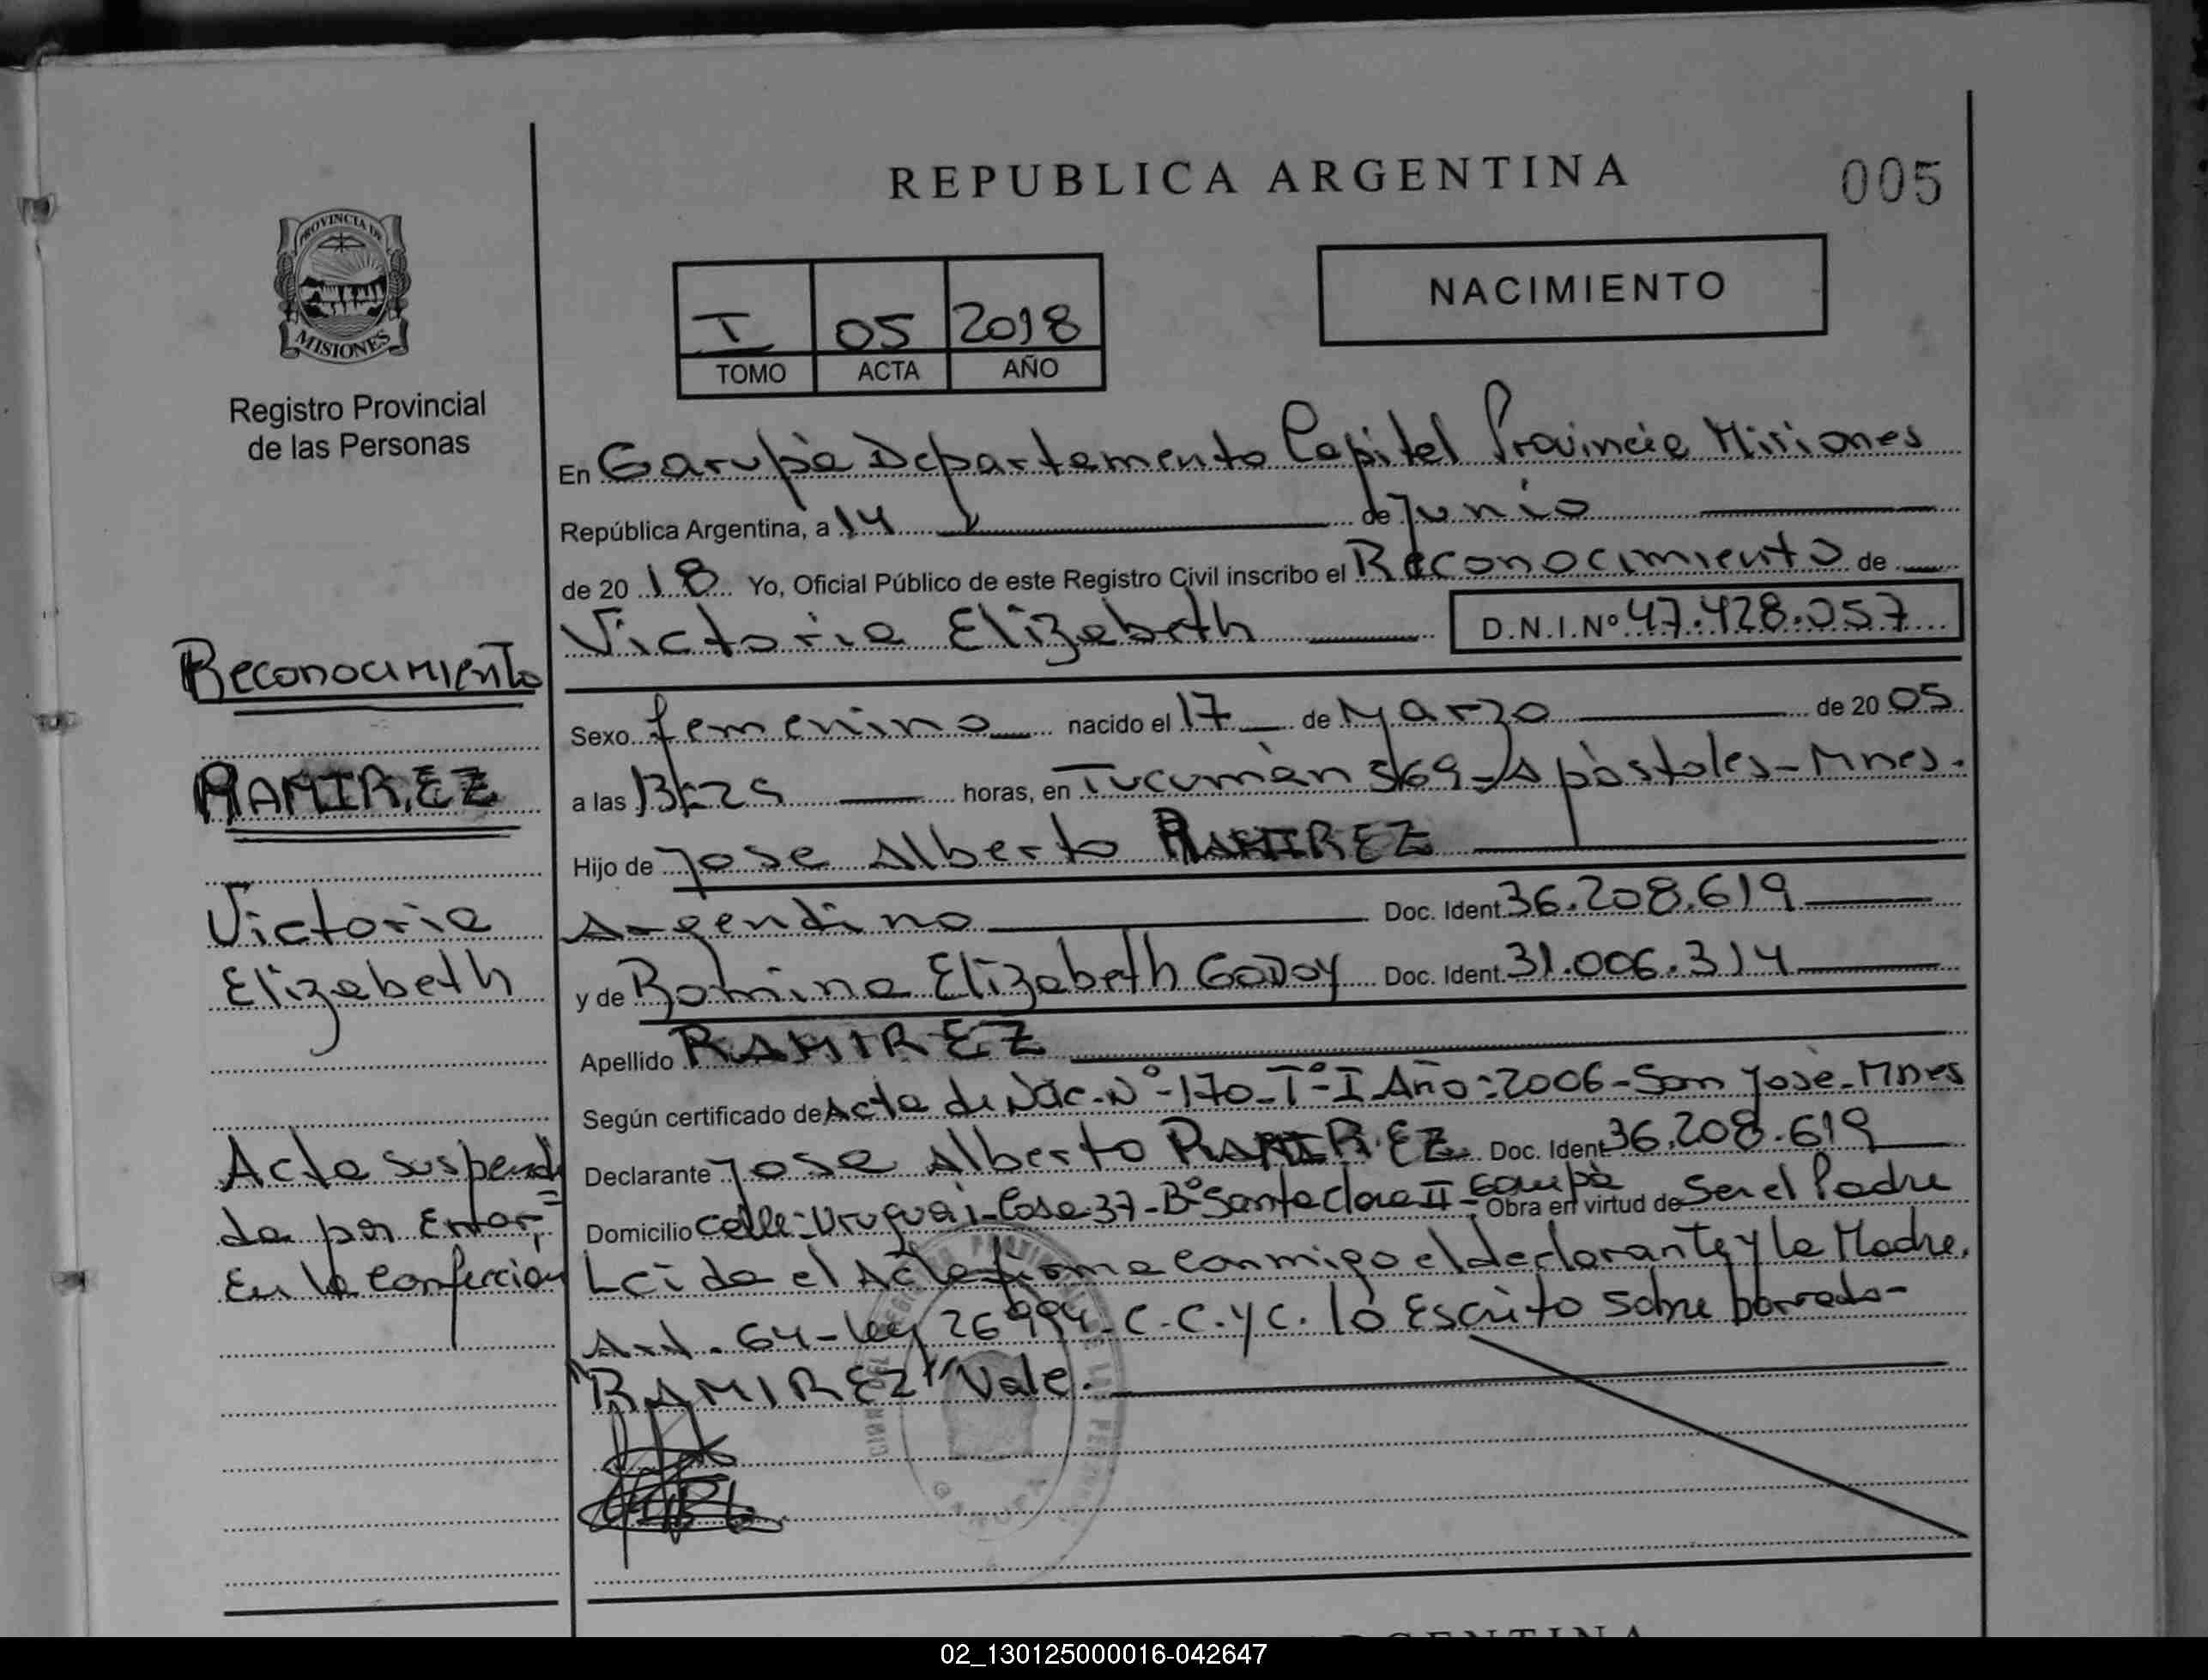 REPUBLICA ARGENTINA
005
PROVINCIA DE
MISIONES
Registro Provincial
de las Personas
NACIMIENTO
I 05 2018
TOMO ACTA AÑO
En Garupà Departamento Capital Provincia Misiones
República Argentina, a 14 de Junio
de 20 18 Yo, Oficial Público de este Registro Civil inscribo el Reconocimiento de
Victoria Elizabeth D.N.I.Nº 47.428.057
Sexo femenino nacido el 17 de Marzo de 20 05
a las 13:25 horas, en Tucumàn 569 - Apòstoles - Mnes.
Hijo de Jose Alberto RAMIREZ
Argentino Doc. Ident. 36.208.619
y de Romina Elizabeth GODOY Doc. Ident. 31.006.314
Apellido RAMIREZ
Según certificado de Acta de Nac. Nº-170-Tº-I Año:2006-San Josè-Mnes
Declarante Jose Alberto RAMIREZ Doc. Ident 36.208.619
Domicilio calle: Uruguai-Casa 37-Bº Santa Clara II - Garupà Obra en virtud de Ser el Padre
Leida el Acta firma conmigo el declarante y la Madre.
Art. 64-Ley 26994-C.C.y C. lo Escrito sobre borrado-
"RAMIREZ" Vale.
Reconocimiento
RAMIREZ
Victoria
Elizabeth
Acta suspendi=
da por Error,
En la confeccion
02_130125000016-042647